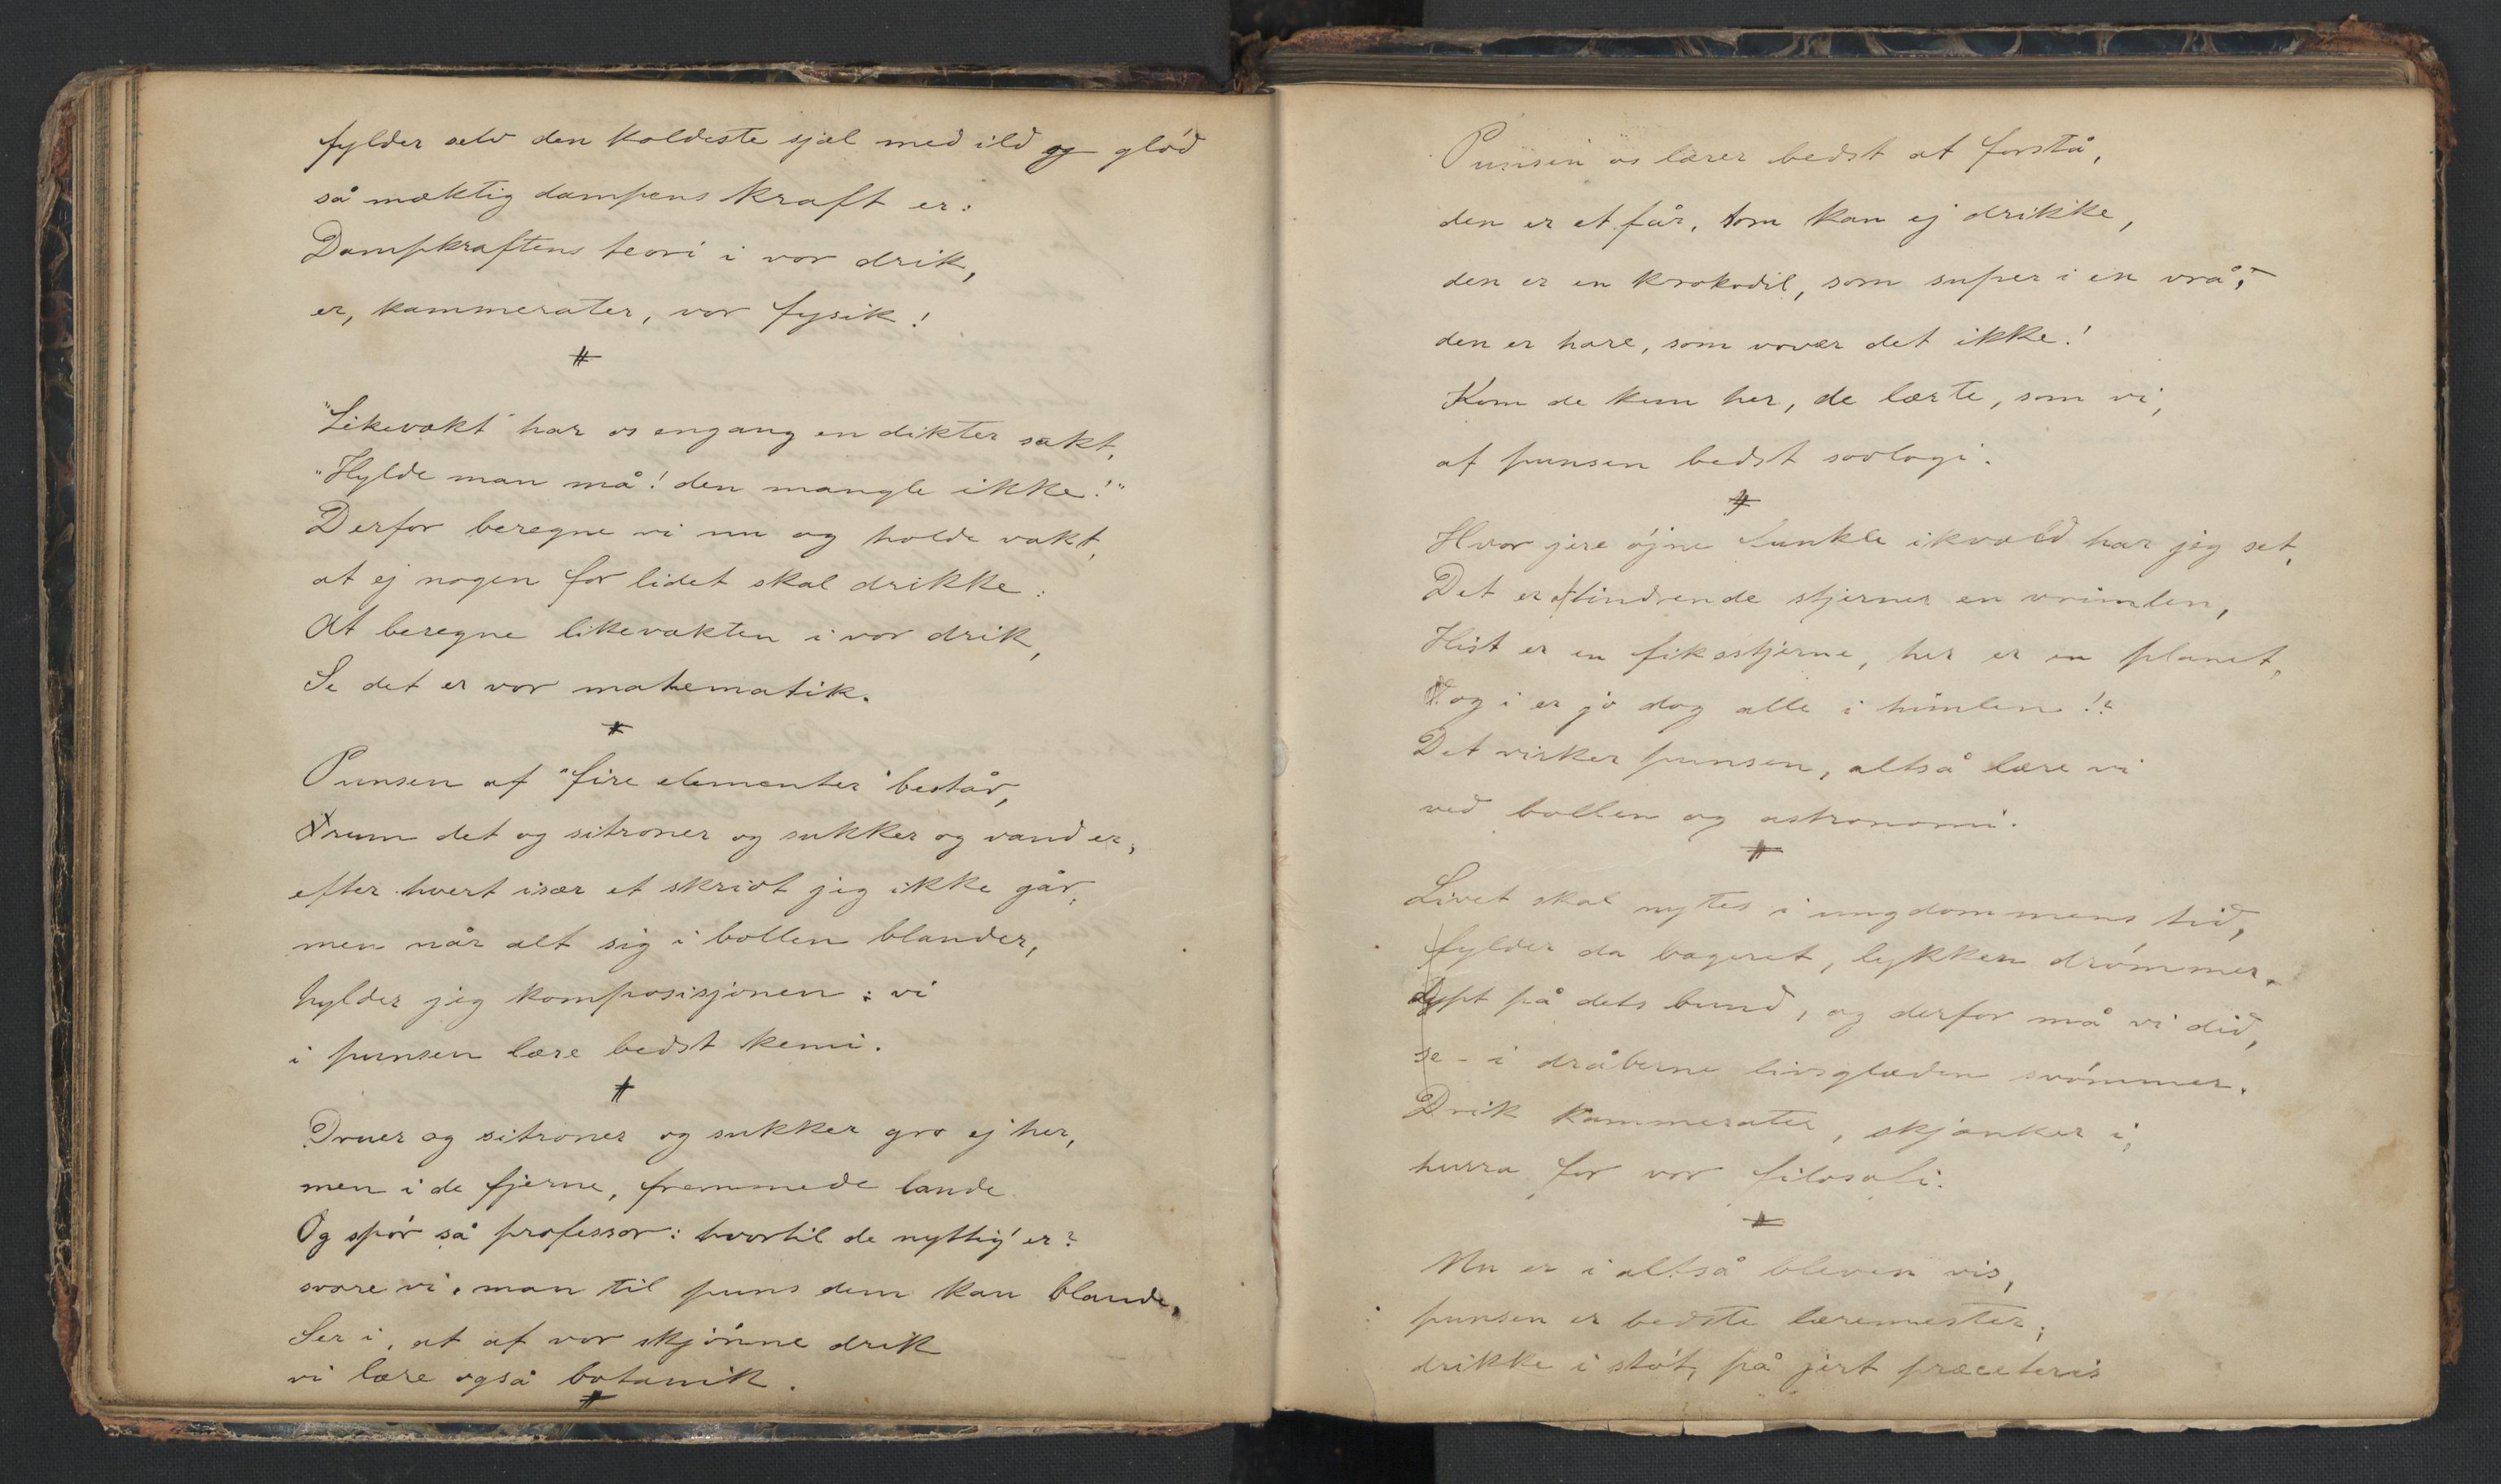 fylder selv den koldeste sjæl med ild og glód
så mæktig dampens kraft er:
Dampkraftens teori i vor drik,
er, kammerater, vor fysik!
#
"Likevækt" har os engang en dikter sakt,
"Hylde man må! den mangle ikke!"
Derfor beregne vi nu og holde vakt,
at ej nogen for lidet skal drikke:
At beregne likevækten i vor drik,
Se det er vor matematik.
#
Punsen af "fire elementer" består,
rum det og sitroner og sukker og vand er,
efter hvert især et skridt jeg ikke går,
men når alt sig i bollen blander,
hylder jeg komposisjonen: vi
i punsen lære bedst kemi.
#
Druer og sitroner og sukker gro ej her,
men i de fjerne, fremmede lande
Og spór så professor: hvortil de nyttig' er?
svare vi, man til puns dem kan blande,
Ser i, at af vor skjónne drik
vi lære også botanik.
#
Punsen os lærer bedst at forstå,
den er et får, som kan ej drikke,
den er en krokodil, som super i en vrå,
den er hare, som vover det ikke!
Kom de kun her, de lærte, som vi,
af punsen bedst soologi.
#
Hvor jere ójne funkle ikvæld har jeg set,
Det er af tindrende stjerner en vrimlen,
Hist er en fiksstjerne, her er en planet,
og i er jo dog alle i himlen!?
Det virker punsen, altså lære vi
ved bollen og astronomi.
#
Livet skal nytes i ungdommens tid,
fylder da bægeret, lykken drómmer
dypt på dets bund, og derfor må vi did,
se - i dråberne livsglæden svómmer.
Drik kammerater, skjænker i,
hurra for vor filosofi.
#
Nu er i altså bleven vis,
punsen er bedste læremester;
drikke i stót, på jert præceteris